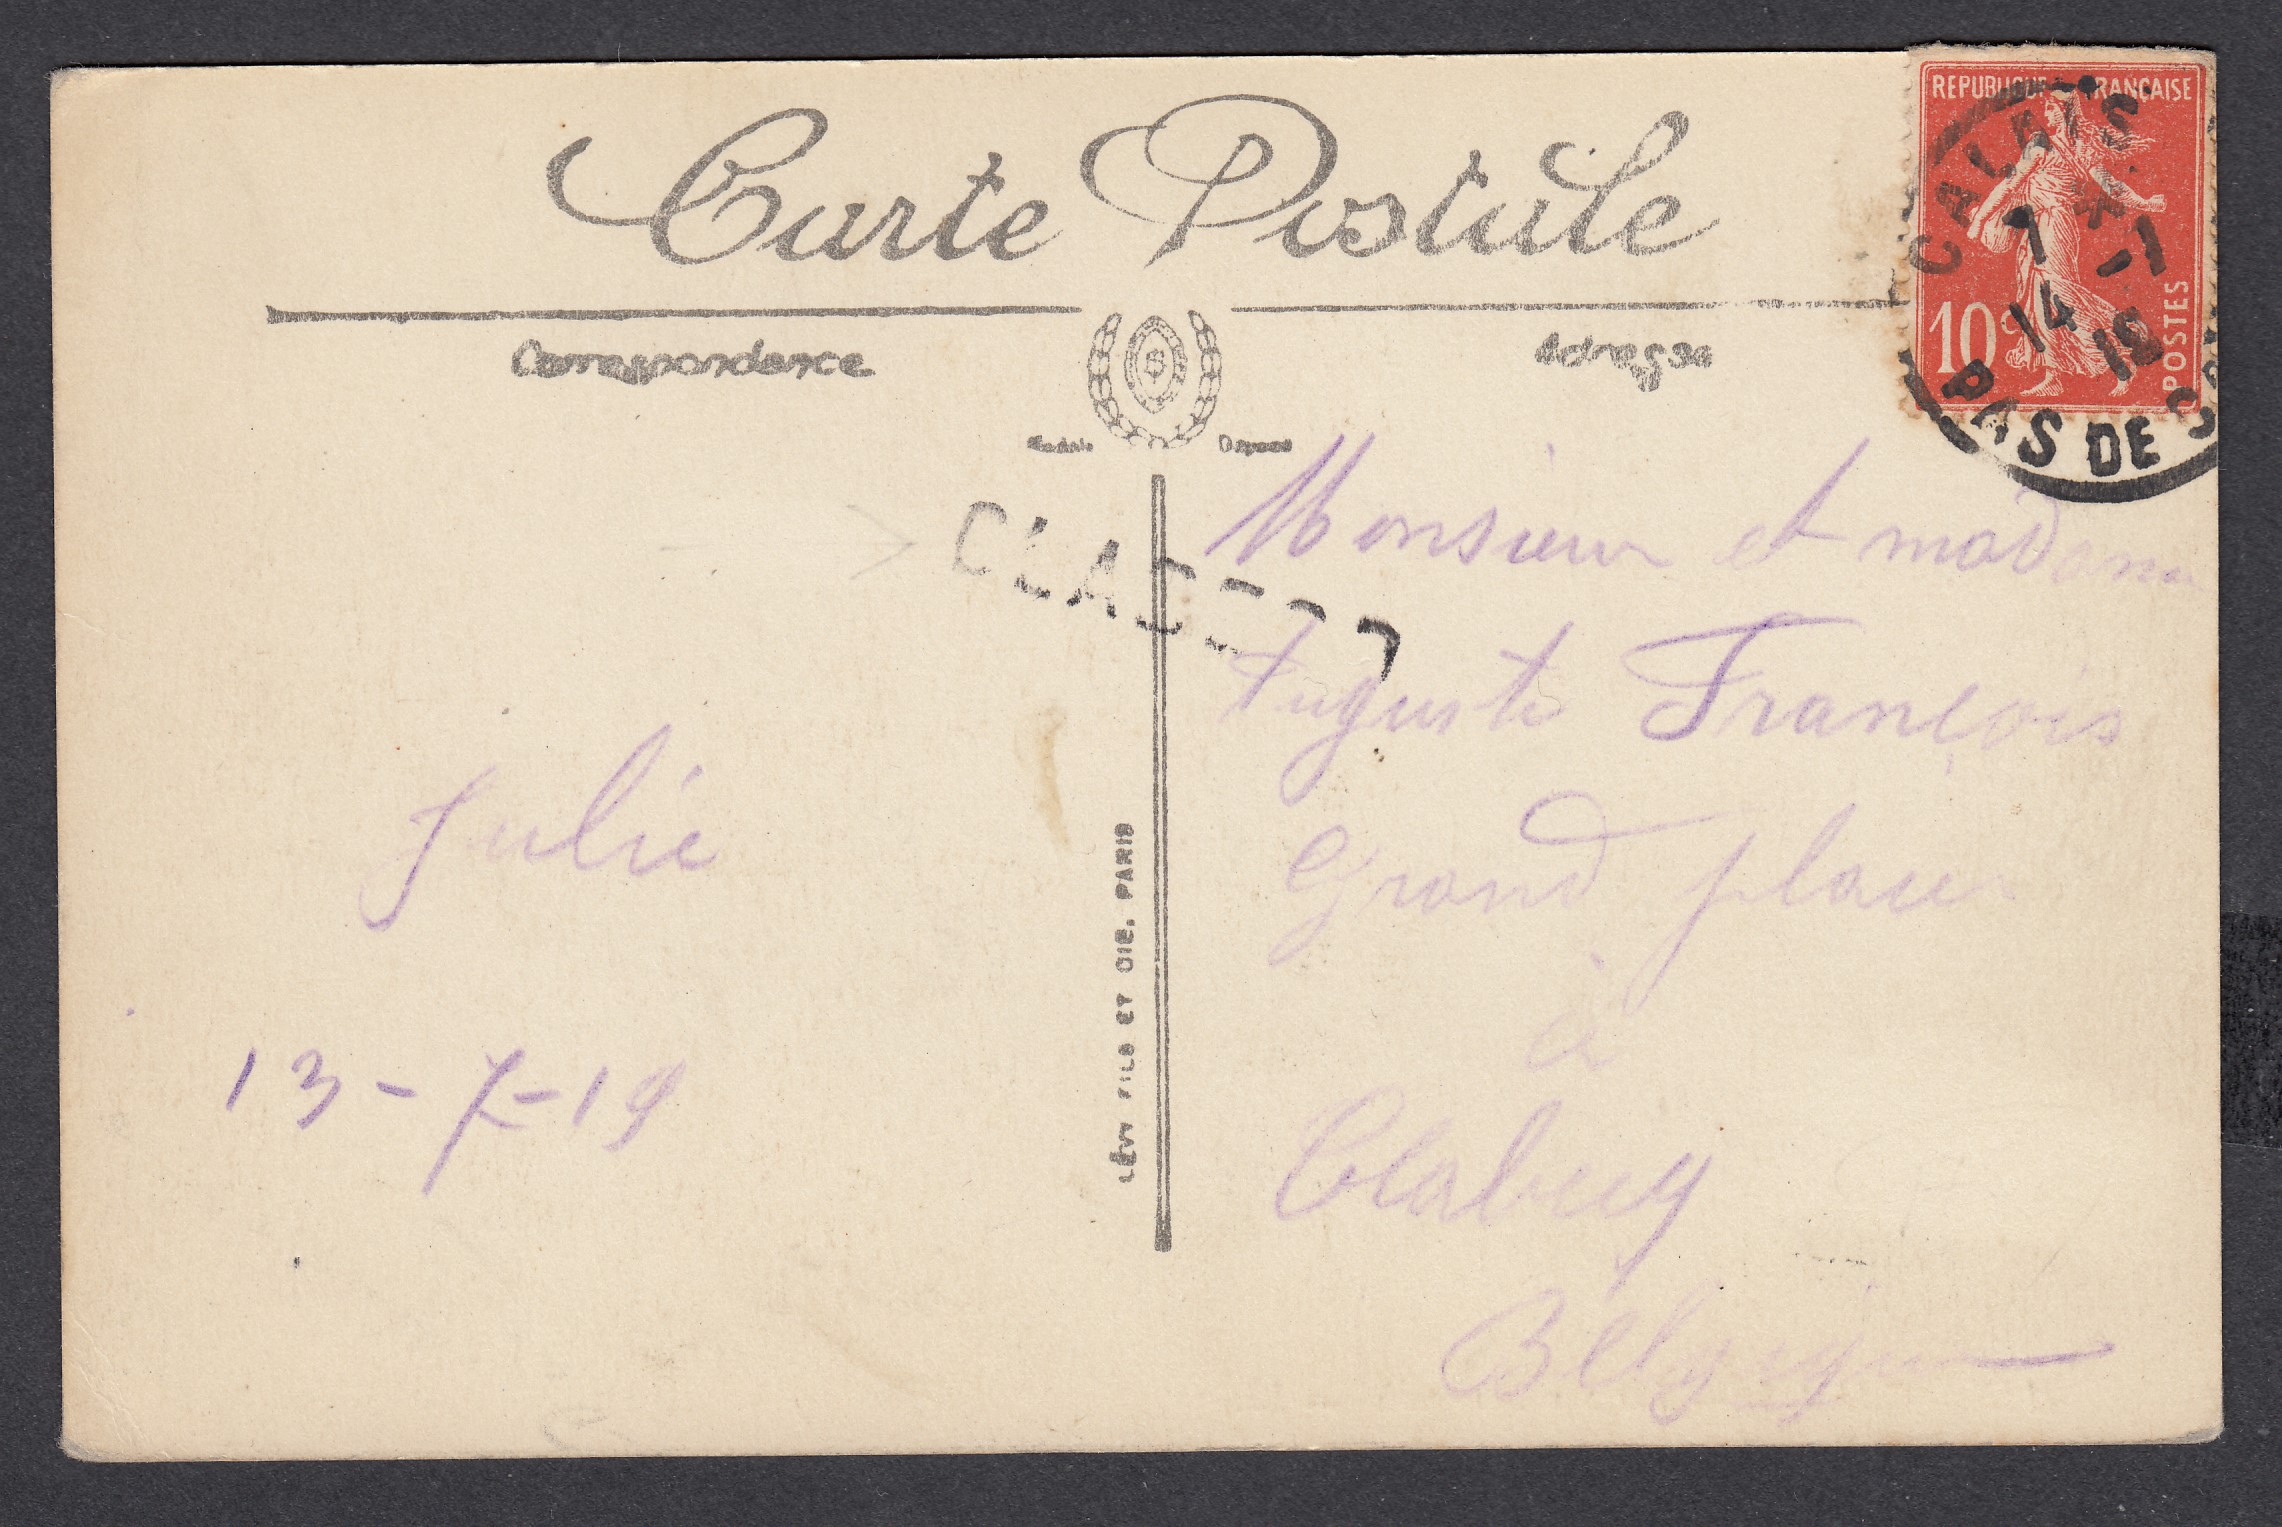 Carte Postale
Correspondance
Adresse
Modèle Déposé
REPUBLIQUE FRANÇAISE
10c
POSTES
CALAIS
7
14 -7
19
PAS DE C
CLA
Monsieur et madame
Auguste François
Grand place
à
Clabecq
Belgique
Julie
13-7-19
LÉVY FILS ET CIE. PARIS